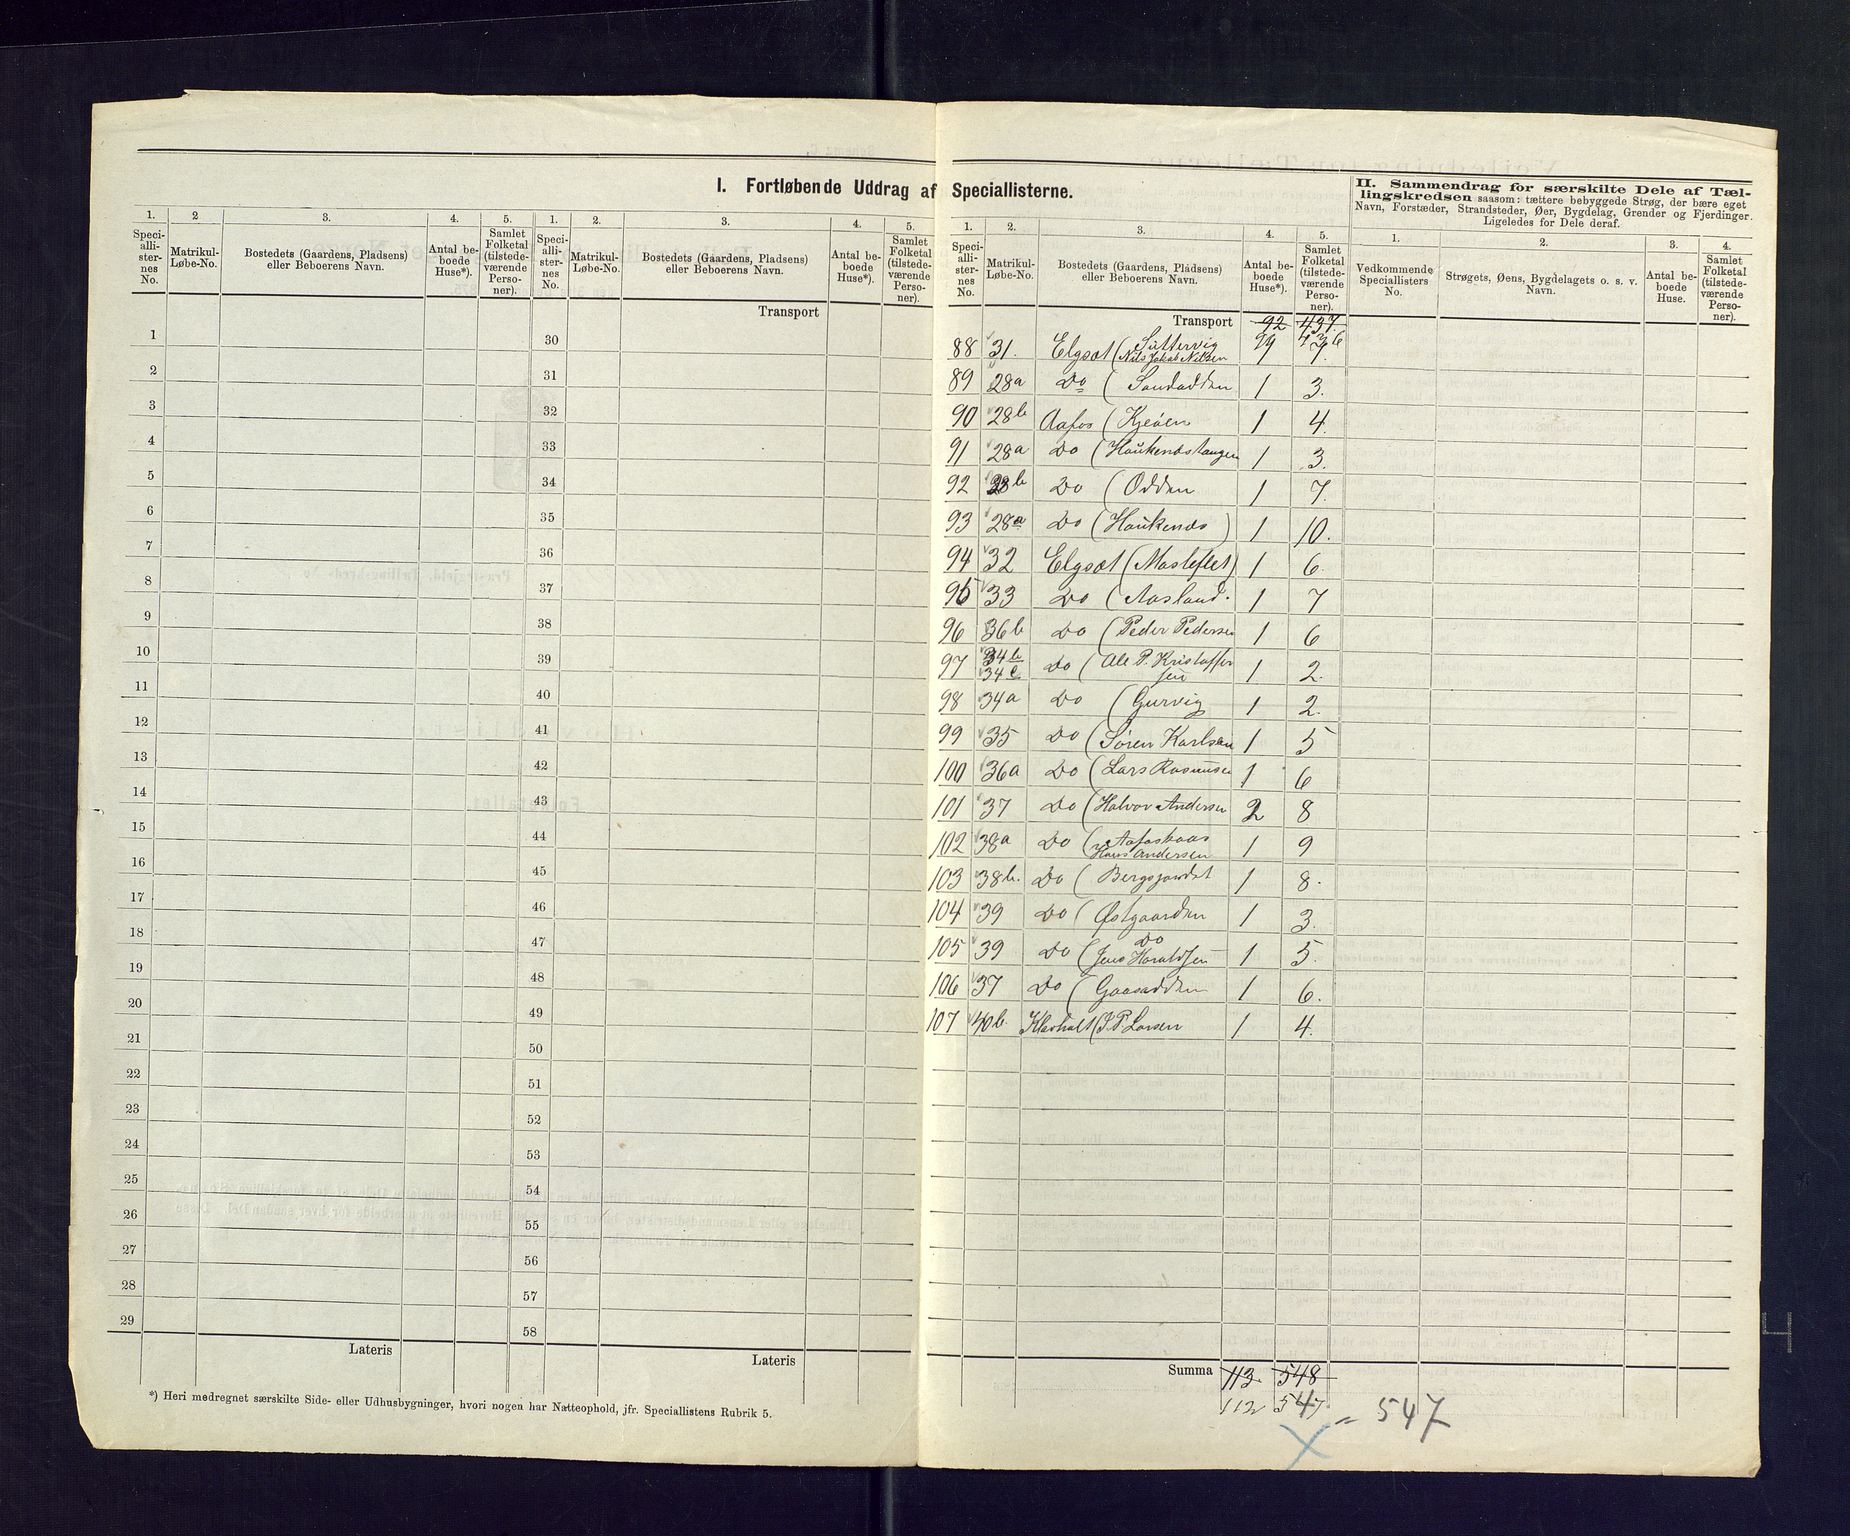 I. Fortløbende Uddrag af Speciallisterne.
1. 2 3. 4. 5. 1. 2. 3. 4. 5.
Speciallisternes No. Matrikul-Løbe-No. Bostedets (Gaardens, Pladsens) eller Beboerens Navn. Antal beboede Huse*). Samlet Folketal (tilstedeværende Personer). Speciallisternes No. Matrikul-Løbe-No. Bostedets (Gaardens, Pladsens) eller Beboerens Navn. Antal beboede Huse*). Samlet Folketal (tilstedeværende Personer).
Transport
1 30
2 31
3 32
4 33
5 34
6 35
7 36
8 37
9 38
10 39
11 40
12 41
13 42
14 43
15 44
16 45
17 46
18 47
19 48
20 49
21 50
22 51
23 52
24 53
25 54
26 55
27 56
28 57
29 58
Lateris Lateris
*) Heri medregnet særskilte Side- eller Udhusbygninger, hvori nogen har Natteophold, jfr. Speciallistens Rubrik 5.
1. 2. 3. 4. 5.
Speciallisternes No. Matrikul-Løbe-No. Bostedets (Gaardens, Pladsens) eller Beboerens Navn. Antal beboede Huse*). Samlet Folketal (tilstedeværende Personer).
Transport 92 437
436
88 31. Elgsæt (Sûttervig 7.
Nils Jakob Nilsen
89 28a Do (Sandodden 1 3.
90 28b Aafos (Kjeöen 1 4.
91 28a Do (Haûkenæstangen 1 3.
92 28b Do (Odden 1 7.
93 28a Do (Haûkenæs) 1 10.
94 32 Elgsæt (Mosleflet) 1 6.
95 33 Do (Aasland. 1 7
96 36b Do (Peder Pedersen 1 6
97 34b Do (Ole P. Kristoffer 1 2.
34c sen
98 34a Do (Gurvig 1 2.
99 35 Do (Søren Karlsen 1 5
100 36a Do (Lars Rasmusen 1 6
101 37 Do (Halvor Andersen 2 8
102 38a Do (Aafoskaas 1 9
Hans Andersen
103 38b. Do (Bergsjordet 1 8.
104 39 Do (Østgaarden 1 3.
105 39 Do (Do 1 5.
Jens Haraldsen
106 37 Do (Gaasodden 1 6.
107 40b. Klavholt (J P Larsen 1 4.
Summa 113. 548
112 547 = 547
X
II. Sammendrag for særskilte Dele af Tællingskredsen saasom: tættere bebyggede Strøg, der bære eget
Navn, Forstæder, Strandsteder, Øer, Bygdelag, Grender og Fjerdinger.
Ligeledes for Dele deraf.
1. 2. 3. 4.
Vedkommende Speciallisters No. Strøgets, Øens, Bygdelagets o. s. v. Navn. Antal beboede Huse. Samlet Folketal (tilstedeværende Personer).